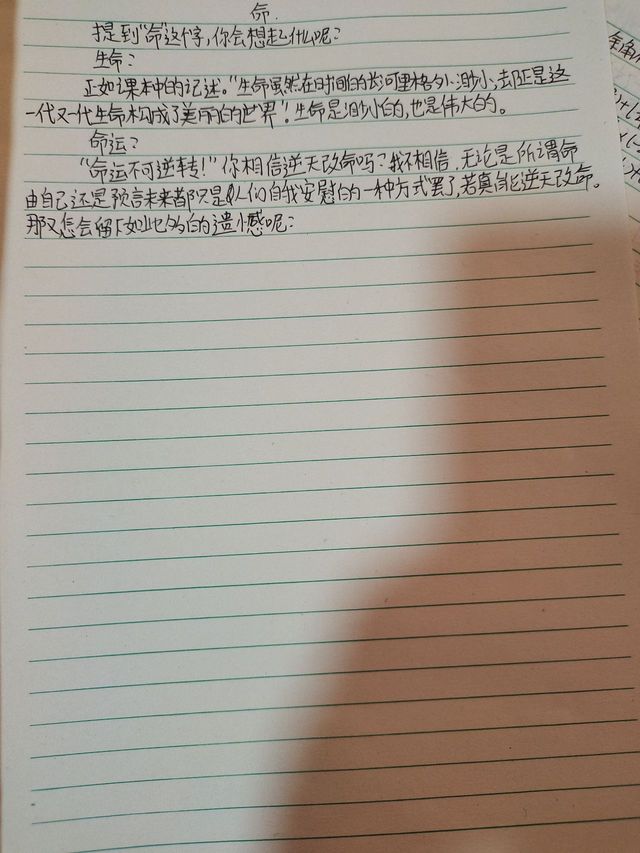 命.
提到“命”这个字,你会想起什么呢?
生命?
正如课本中的记述。“生命虽然在时间的长河里格外渺小、却正是这
一代又一代生命构成了美丽的世界”!生命是渺小的,也是伟大的。
命运?
“命运不可逆转!”你相信逆天改命吗?我不相信.无论是所谓命
由自己还是预言未来都只是人们自我安慰的一种方式罢了,若真能逆天改命。
那又怎会留下如此多的遗憾呢?